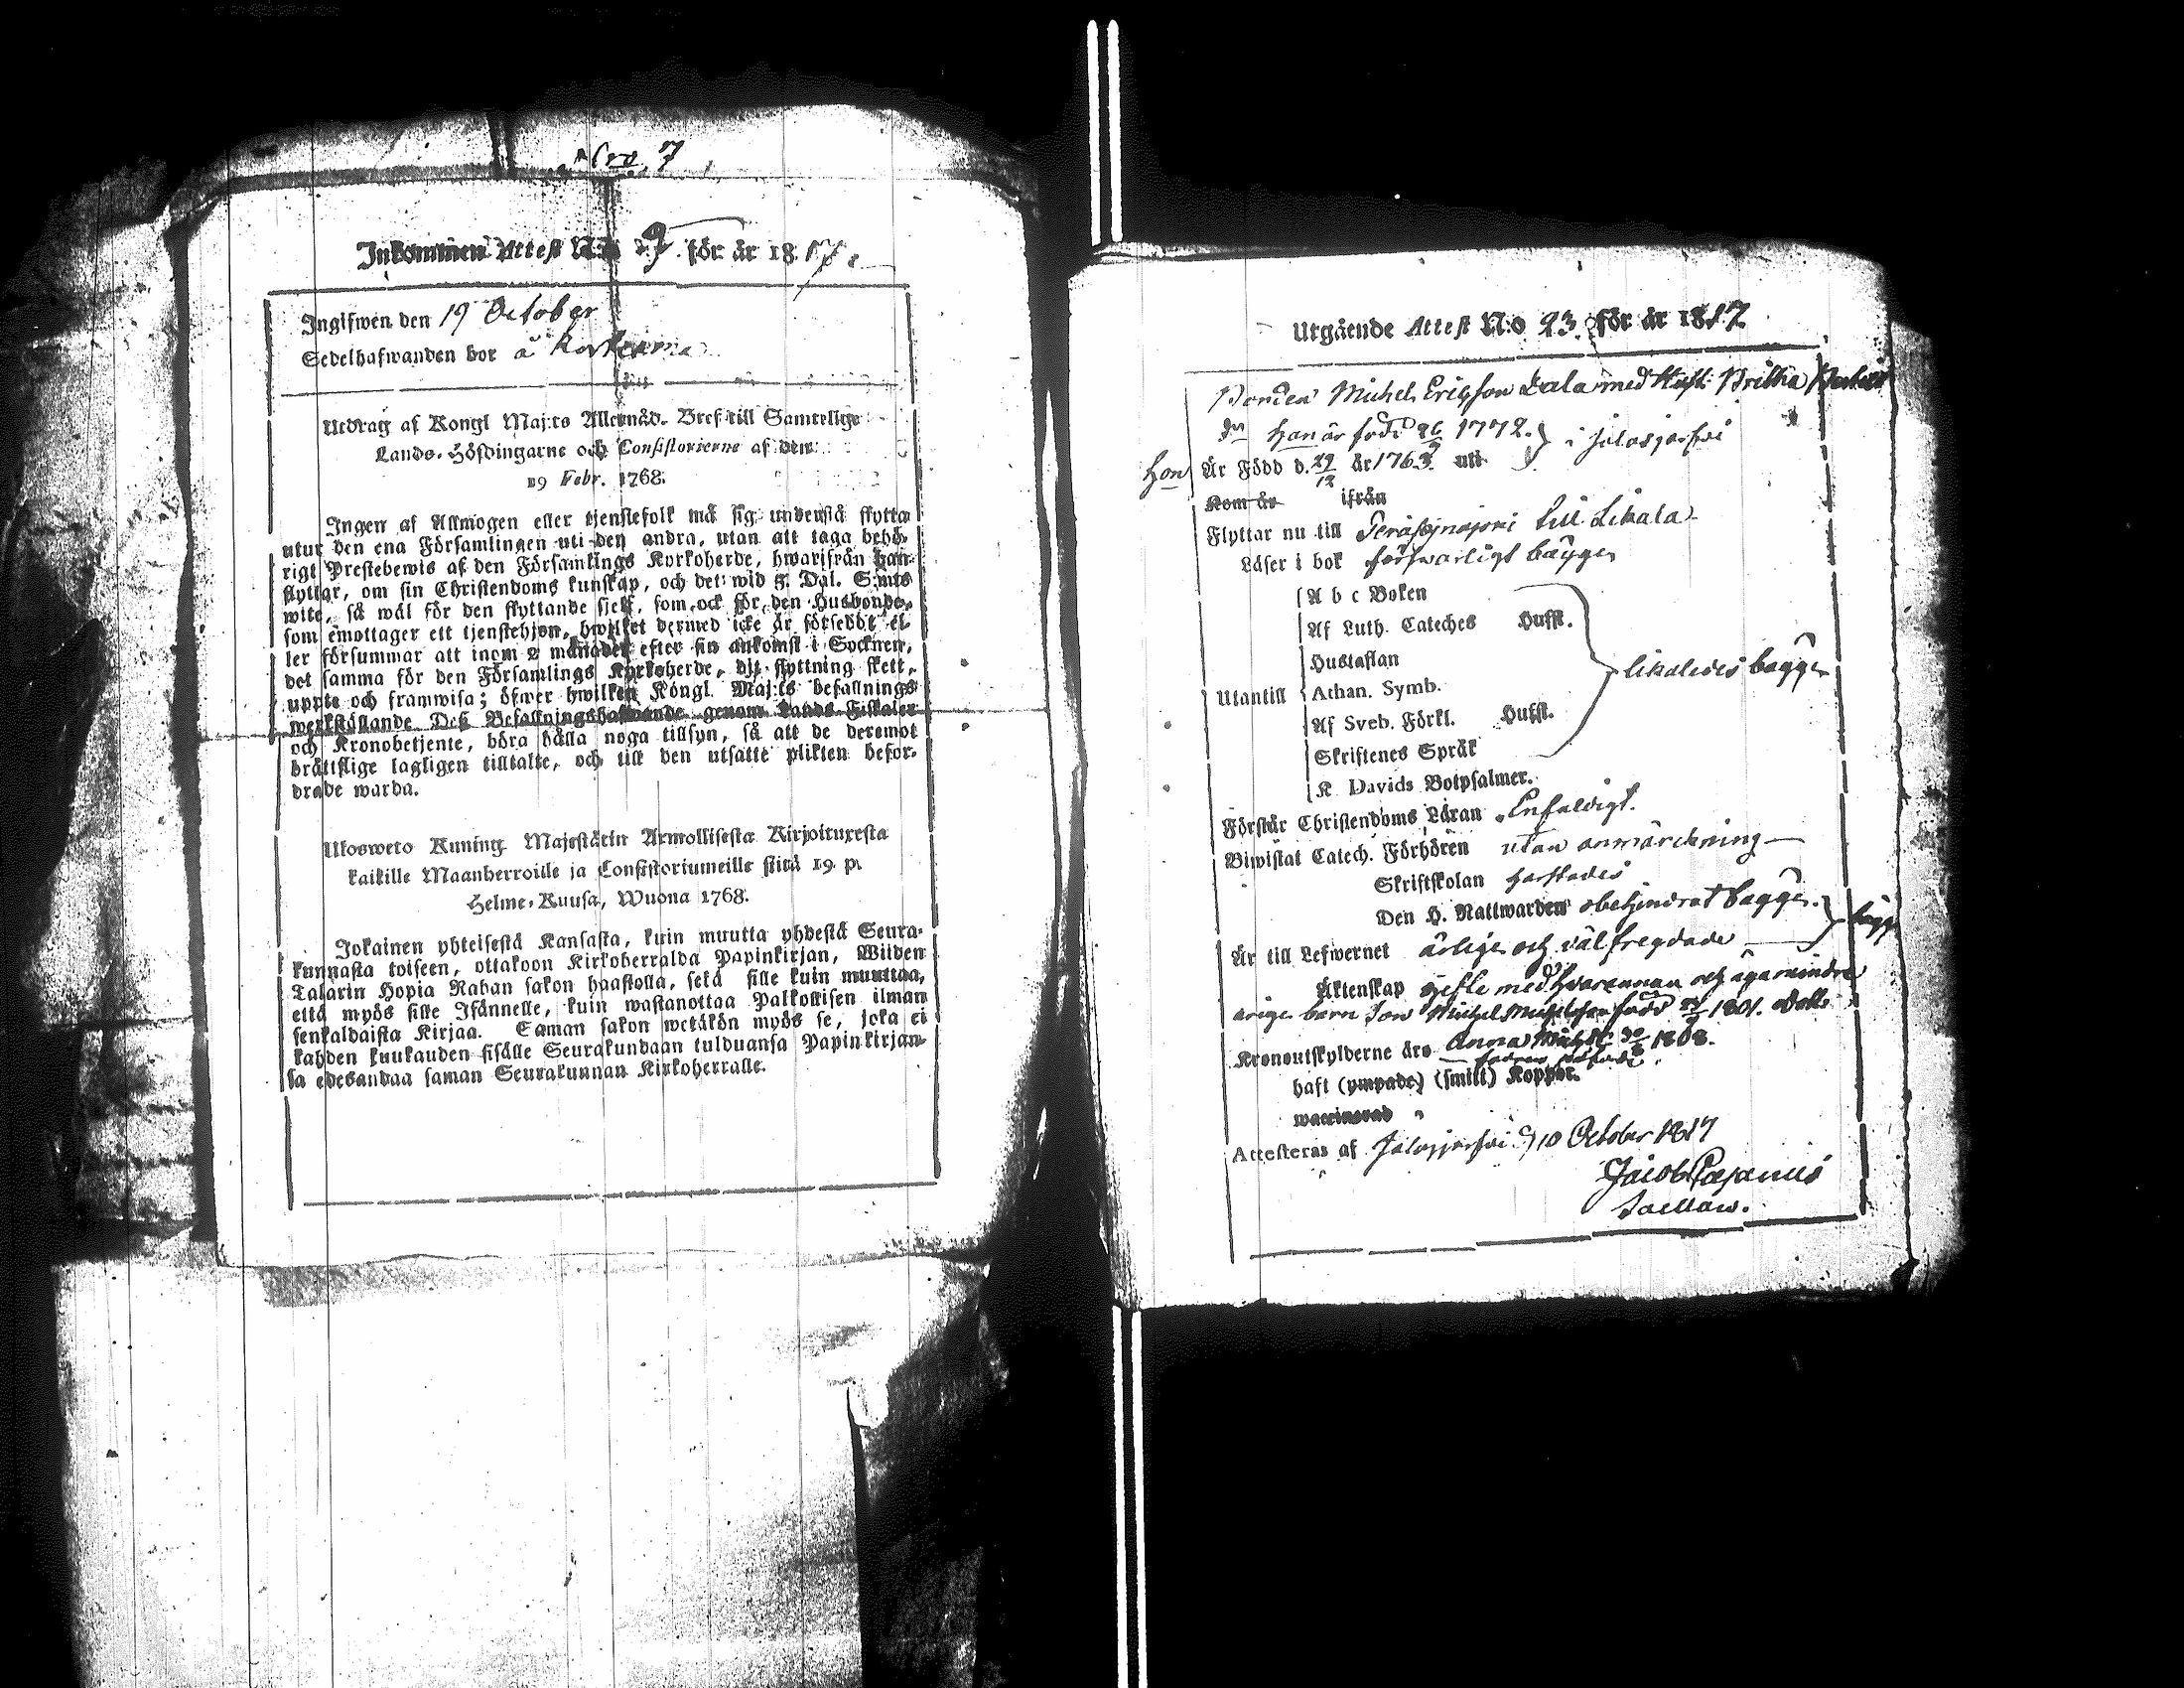 Nro 7
Inkommen Attest N:o 9 för år 1817.
Ingifwen den 19 October
Sedelhafwanden bor å
Utdrag af Kongl Maj:ts Allernåd. Bref till Samtelige
Lands-Höfdingarne och Consistorierne af den
19 Febr. 1768.
Ingen af Allmogen eller tjenstefolk må sig understå flytta
utur den ena Församlingen uti den andra, utan att taga behö-
rigt Prestebewis af den Församlings Kyrkoherde, hwarifrån han
flyttar, om sin Christendoms kunskap, och det wid 5 Dal. S:mts
wite, så wäl för den flyttande sielf, som ock för den Husbonde,
som emottager ett tjenstehjon, hwilket dermed icke är försedt, el-
ler försummar att inom 2 månader efter sin ankomst i Socknen,
det samma för den Församlings Kyrkoherde, dit flyttning skett,
uppte och framwisa; öfwer hwilken Kongl. Maj:ts befallnings
werkställande Deß Befallningshafwande genom Lands Fiskaler
och Kronobetjente, böra hålla noga tillsyn, så att de deremot
bråttslige lagligen tilltalte, och till den utsatte plikten befor-
drade warda.
Ulosweto Kuning. Majestätin Armollisesta Kirjoituxesta
kaikille Maanherroille ja Consistoriumeille siitä 19. p.
Helme-Kuusa, Wuona 1768.
Jokainen yhteisestä Kansasta, kuin muutta yhdestä Seura-
kunnasta toiseen, ottakoon Kirkoherralda Papinkirjan, Wiiden
Talarin Hopia Rahan sakon haastolla, sekä sille kuin muuttaa,
että myös sille Isännelle, kuin wastanottaa Palkollisen ilman
senkaldaista Kirjaa. Saman sakon wetäkön myös se, joka ei
kahden kuukauden sisälle Seurakundaan tulduansa Papinkirjan-
sa edesandaa saman Seurakunnan Kirkoherralle.
Utgående Attest N:o 23. för år 1817
Bonden Michel Ericsson Lala med Hust. Britha
han är född 26 1772. } i Jalasjerfvi
hon Är Född d. 29/12 år 1763. uti
Kom år ifrån
Flyttar nu till till Likala
Läser i bok försvarligt bägge
A b c Boken
Af Luth. Cateches Hufst.
Hustaflan
Utantill Athan. Symb. likaledes bägge
Af Sveb. Förkl. Hufst.
Skriftenes Språk
K Davids Botpsalmer.
Förstår Christendoms Läran Enfaldigt.
Biwistat Catech. Förhören utan anmärckning
Skriftskolan
Den H. Nattwarden obehindrat bägge.
Är till Lefwernet ärlige och väl fregdade bägge
Äktenskap gifte med hvarannan och äga minder
årige barn Son Michel Michelsson född 1801. Dottr
Kronoutskylderne äro Anna Michelsd. 30/8 1808.
haft (ympade) (smitt) Koppor.
waccinerad
Attesteras af Jalasjerfvi d 10 October 1817
Jacob Cajanus
Sacellan.